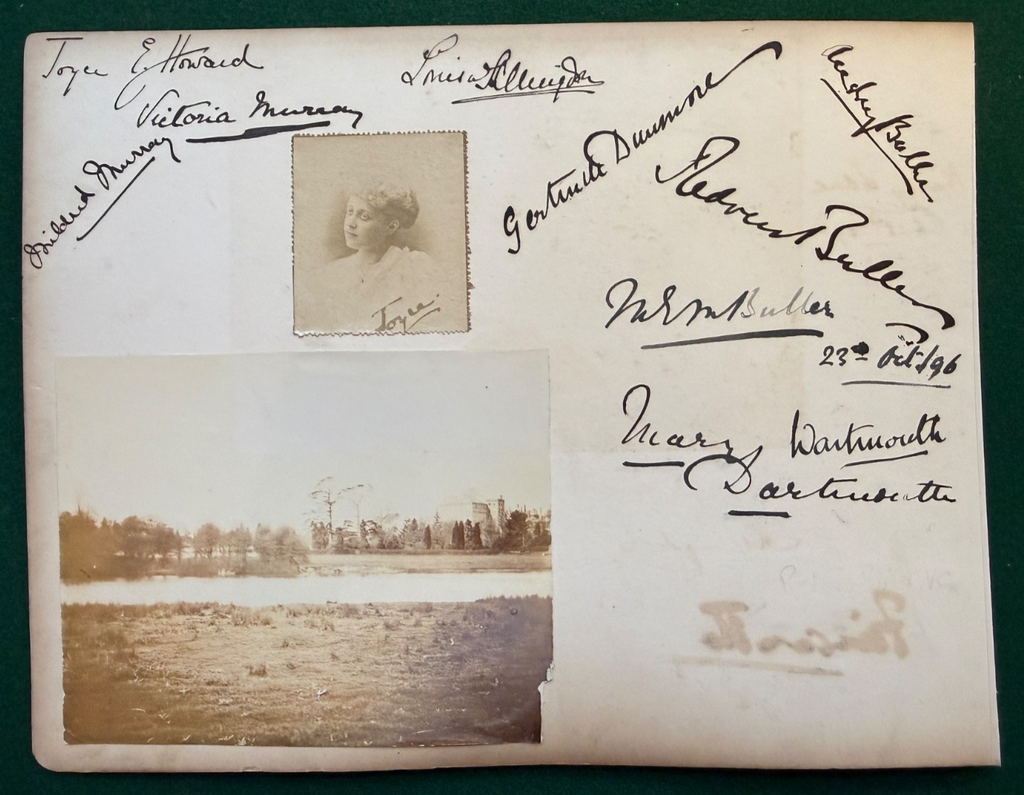 Joyce E. Howard
Louisa Fillingdon
Audrey Buller
Victoria Murray
Mildred Murray
Gertrude Dunmore
Redvers Buller
Joyce.
M E M Buller
23rd Oct./96
Mary Dartmouth
Dartmouth